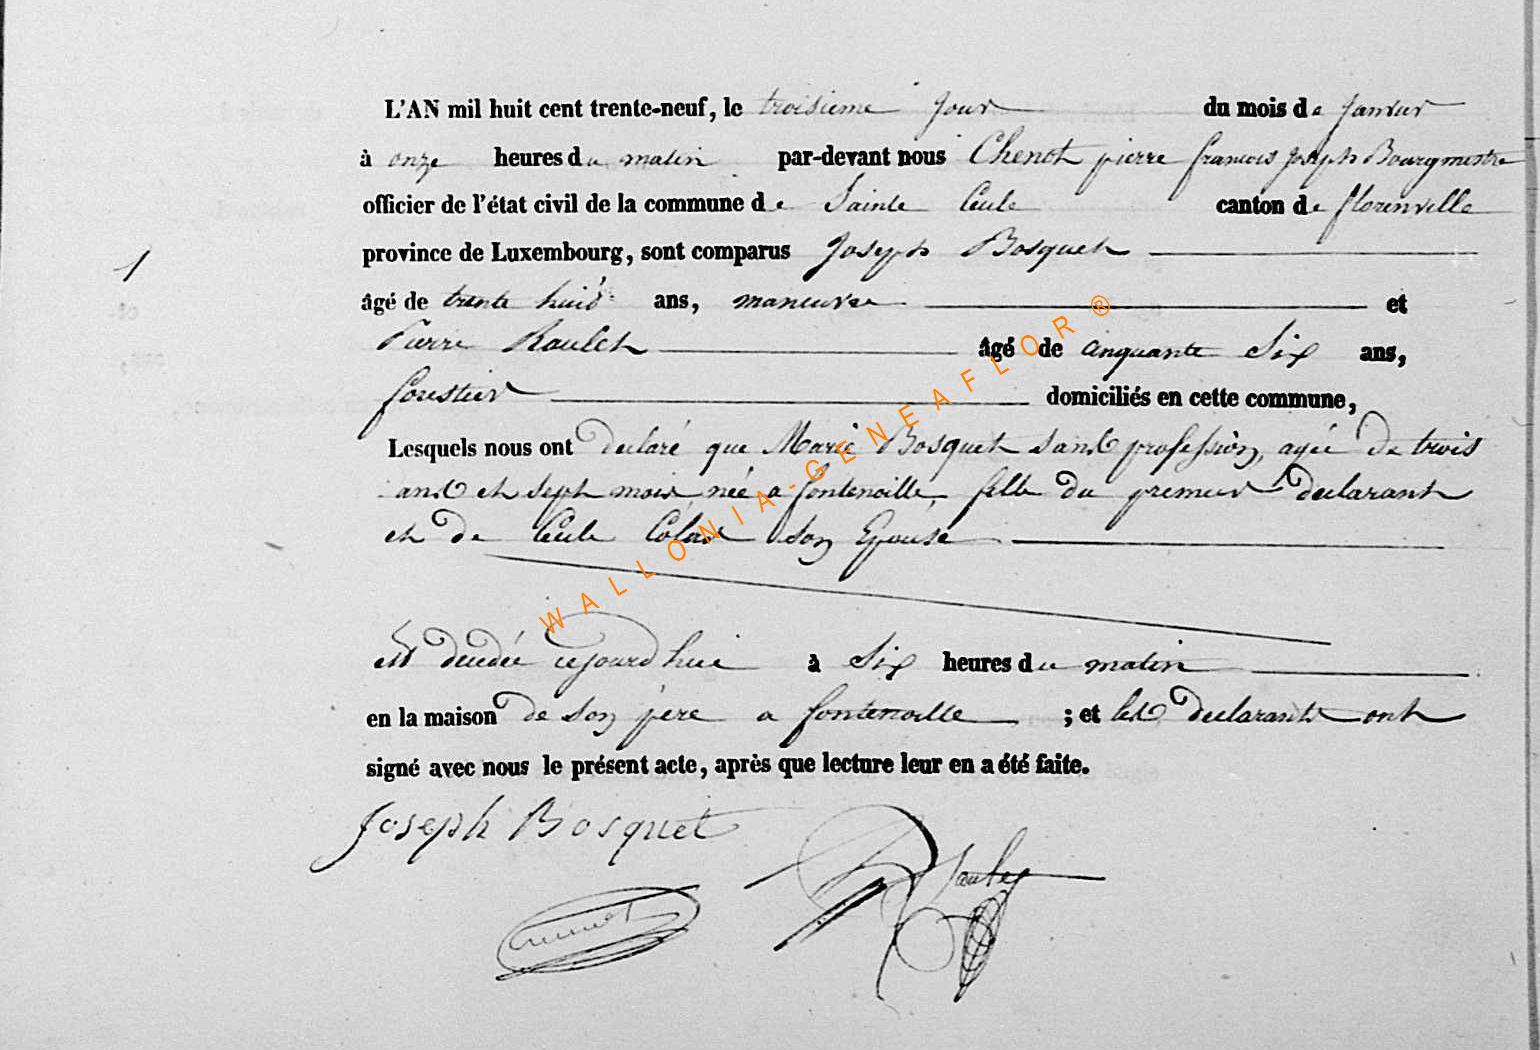 L'AN mil huit cent trente-neuf, le troisieme jour du mois de Janvier
à onze heures du matin par-devant nous Chenot pierre francois Joseph Bourgmestre
officier de l'état civil de la commune de Sainte Cecile canton de florenville
1 province de Luxembourg, sont comparus Joseph Bosquet
âgé de trente huit ans, maneuvre et
Pierre Raulet âgé de cinquante Six ans,
forestier domiciliés en cette commune,
Lesquels nous ont declaré que Marie Bosquet sans profession, agée de trois
ans et sept mois née a fontenoille, fille du premier declarant
et de Cecile Colas Son Epouse
est decedée cejourd'hui à Six heures du matin
en la maison de son père a fontenoille ; et les declarants ont
signé avec nous le présent acte, après que lecture leur en a été faite.
Joseph Bosquet
WALLONIA-GENEAFLOR®